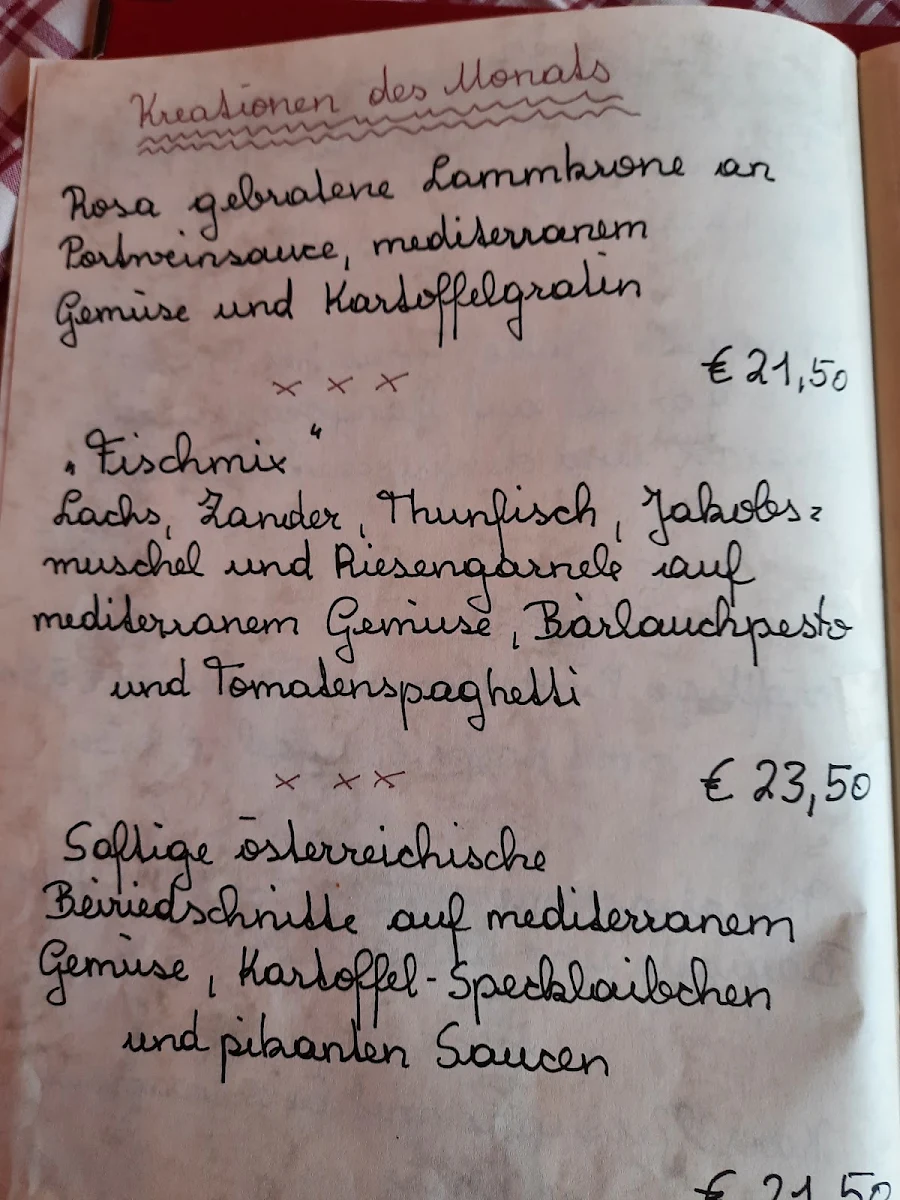 Kreationen des Monats
Rosa gebratene Lammkrone an
Portweinsauce, mediterranem
Gemüse und Kartoffelgratin
€ 21,50
x x x
„Fischmix“
Lachs, Zander, Thunfisch, Jakobs=
muschel und Riesengarnele auf
mediterranem Gemüse, Bärlauchpesto
und Tomatenspaghetti
€ 23,50
x x x
Saftige österreichische
Beiriedschnitte auf mediterranem
Gemüse, Kartoffel-Specklaibchen
und pikanten Saucen
€ 21,50